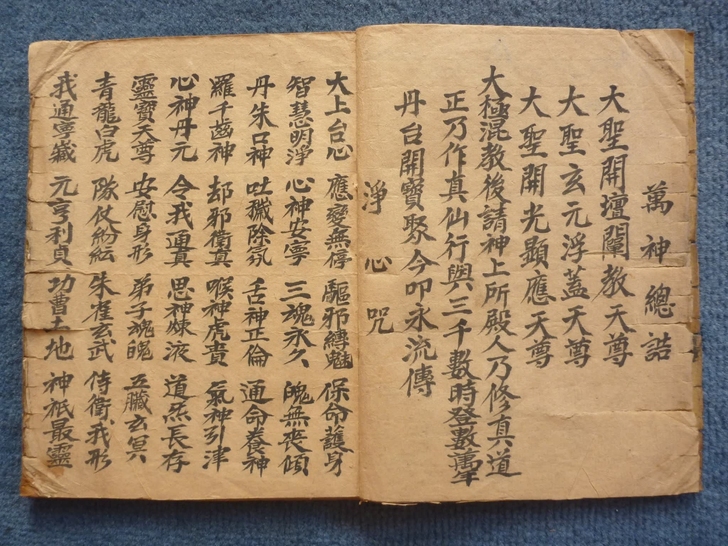 萬神總誥
大聖開壇闡教天尊
大聖玄元浮蓋天尊
大聖開光顯應天尊
大極混教後請神上所殿人乃修真道
正乃作真仙行與三千數時登數萬年
丹台開寶聚今叩永流傳
淨心咒
大上台心 應變無停 驅邪縛魅 保命護身
智慧明淨 心神安寧 三魂永久 魄無喪傾
丹朱口神 吐穢除氛 舌神正倫 通命養神
羅千齒神 却邪衛真 喉神虎賁 氣神引津
心神丹元 令我通真 思神煉液 道炁長存
靈寶天尊 安慰身形 弟子魂魄 五臟玄冥
青龍白虎 隊仗紛紜 朱雀玄武 侍衛我形
元亨利貞 功曹土地 神祇最靈